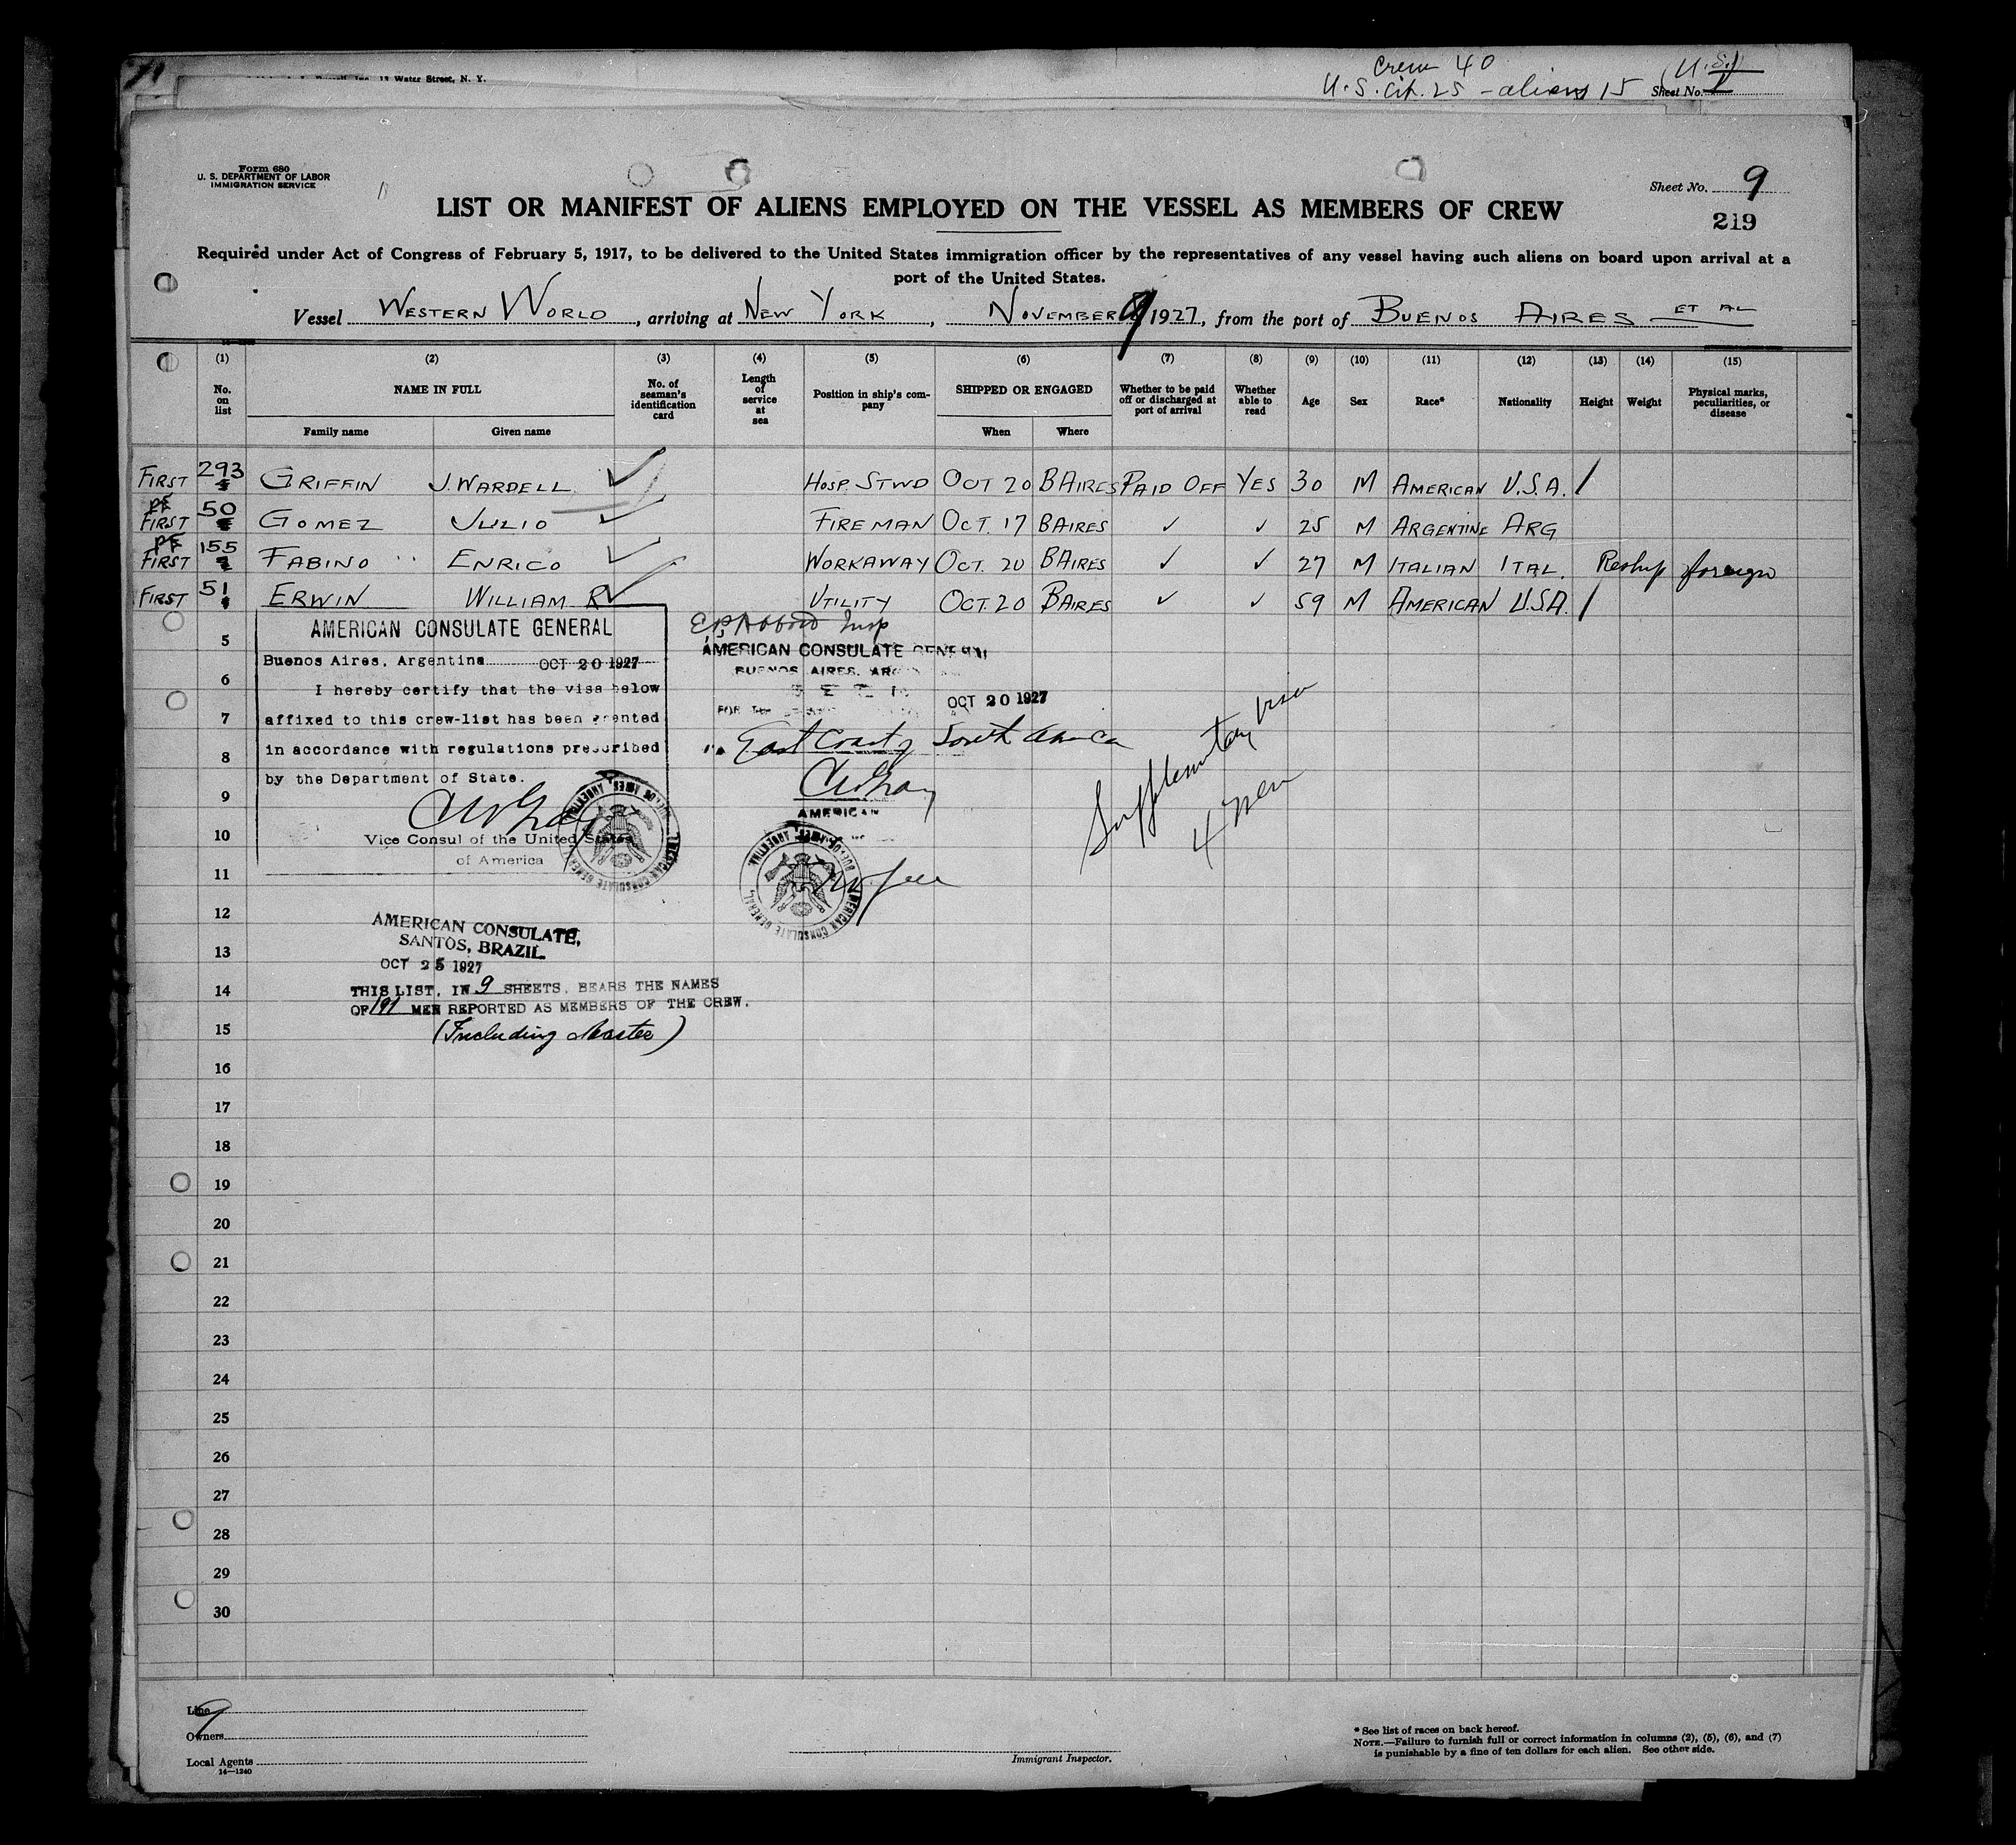 13 Water Street, N. Y.
Crew 40
U.S. cit. 25 - aliens 15
(U.S.)
Sheet No. 1
Form 680
U. S. DEPARTMENT OF LABOR
IMMIGRATION SERVICE
Sheet No. 9
219
LIST OR MANIFEST OF ALIENS EMPLOYED ON THE VESSEL AS MEMBERS OF CREW
Required under Act of Congress of February 5, 1917, to be delivered to the United States immigration officer by the representatives of any vessel having such aliens on board upon arrival at a
port of the United States.
Vessel WESTERN WORLD, arriving at NEW YORK, NOVEMBER 9 1927, from the port of BUENOS AIRES ET AL
(1) (2) (3) (4) (5) (6) (7) (8) (9) (10) (11) (12) (13) (14) (15)
No. on list
NAME IN FULL
Family name Given name
No. of seaman's identification card
Length of service at sea
Position in ship's company
SHIPPED OR ENGAGED
When Where
Whether to be paid off or discharged at port of arrival
Whether able to read
Age Sex Race* Nationality Height Weight
Physical marks, peculiarities, or disease
FIRST 293 GRIFFIN J. WARDELL ✓ HOSP. STWD OCT 20 BAIRES PAID OFF YES 30 M AMERICAN U.S.A. /
PF
FIRST 50 GOMEZ JULIO ✓ FIREMAN OCT. 17 BAIRES ✓ ✓ 25 M ARGENTINE ARG
PF
FIRST 155 FABINO ENRICO ✓ WORKAWAY OCT. 20 BAIRES ✓ ✓ 27 M ITALIAN ITAL. Reship foreign
FIRST 51 ERWIN WILLIAM R ✓ UTILITY OCT. 20 BAIRES ✓ ✓ 59 M AMERICAN U.S.A. /
AMERICAN CONSULATE GENERAL
Buenos Aires, Argentina OCT 20 1927
I hereby certify that the visa below
affixed to this crew-list has been granted
in accordance with regulations prescribed
by the Department of State.
Vice Consul of the United States
of America
Insp
AMERICAN CONSULATE GENERAL
BUENOS AIRES, ARG
OCT 20 1927
FOR THE
East Coast of South America
AMERICAN
no fee
AMERICAN CONSULATE GENERAL
BUENOS AIRES, ARGENTINA
Supplementary visa
4 men
AMERICAN CONSULATE,
SANTOS, BRAZIL.
OCT 25 1927
THIS LIST, IN 9 SHEETS, BEARS THE NAMES
OF 191 MEN REPORTED AS MEMBERS OF THE CREW.
(Including Master)
5
6
7
8
9
10
11
12
13
14
15
16
17
18
19
20
21
22
23
24
25
26
27
28
29
30
Line 9
Owners
Local Agents
14—1240
Immigrant Inspector.
* See list of races on back hereof.
NOTE.—Failure to furnish full or correct information in columns (2), (5), (6), and (7)
is punishable by a fine of ten dollars for each alien. See other side.